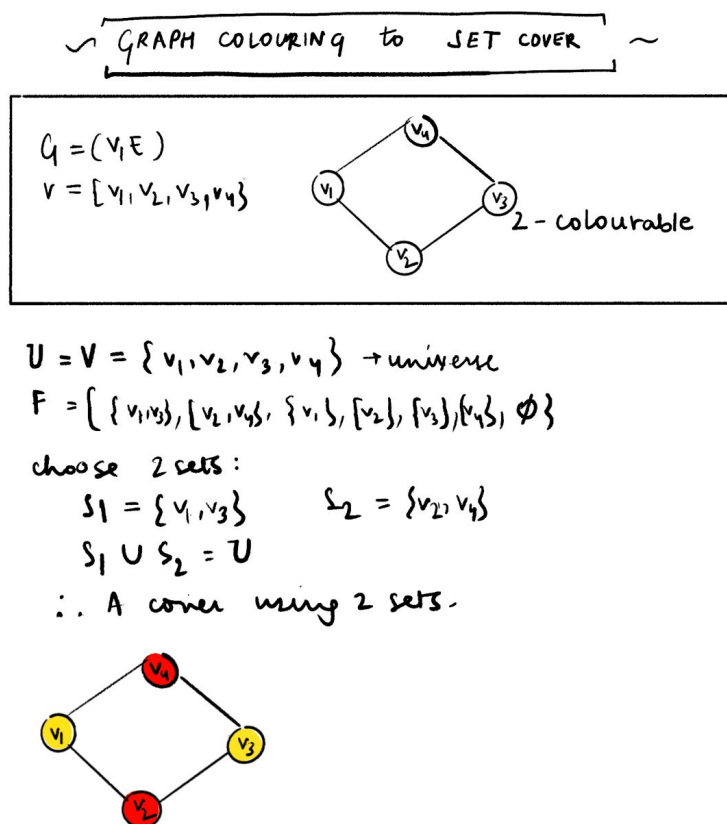 ~ GRAPH COLOURING to SET COVER ~
G = (V, E)
V = [v1, v2, v3, v4}
v4
v1
v3
2-colourable
v2
U = V = {v1, v2, v3, v4} → universe
F = [{v1, v3}, [v2, v4}, {v1}, [v2], [v3}, [v4}, φ}
choose 2 sets:
S1 = {v1, v3} S2 = {v2, v4}
S1 ∪ S2 = U
∴ A cover using 2 sets.
v4
v1
v3
v2